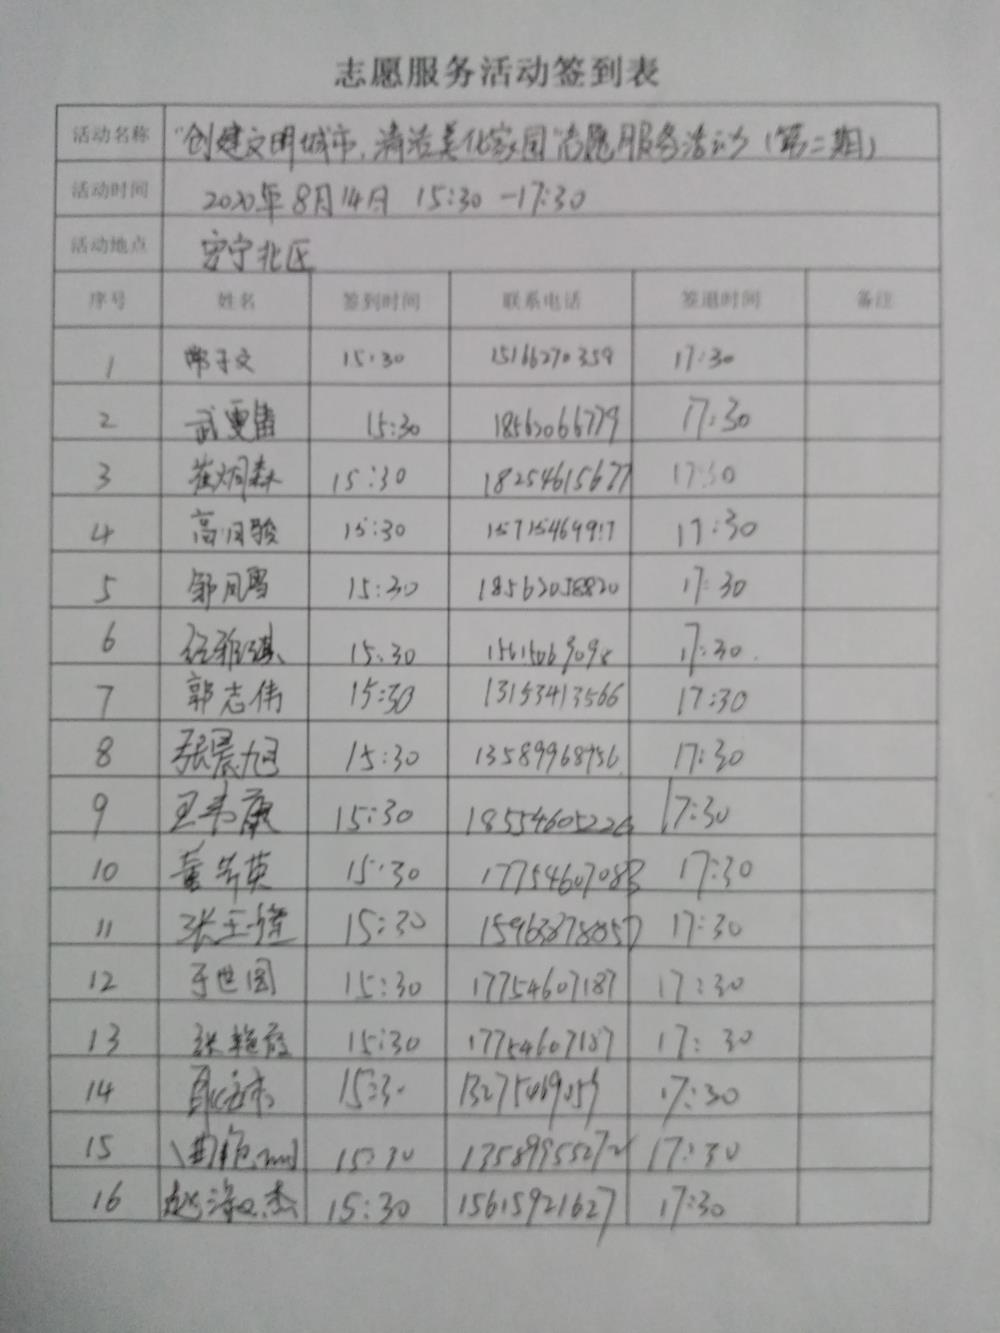 志愿服务活动签到表
活动名称 "创建文明城市,清洁美化家园"志愿服务活动(第二期)
活动时间 2020年8月14日 15:30-17:30
活动地点 安宁北区
序号 姓名 签到时间 联系电话 签退时间 备注
1 常子文 15:30 15166270359 17:30
2 15:30 18562066779 17:30
3 崔炯森 15:30 18254615677 17:30
4 高凤骏 15:30 17:30
5 邹凤雪 15:30 18562058820 17:30
6 15:30 15615069098 17:30
7 郭志伟 15:30 13153413566 17:30
8 张晨旭 15:30 13589968956 17:30
9 王韦康 15:30 18554605226 17:30
10 15:30 17754607083 17:30
11 张玉 15:30 17:30
12 于世图 15:30 17754607187 17:30
13 张艳霞 15:30 17754607187 17:30
14 15:30 17:30
15 15:30 17:30
16 赵海杰 15:30 15615921627 17:30